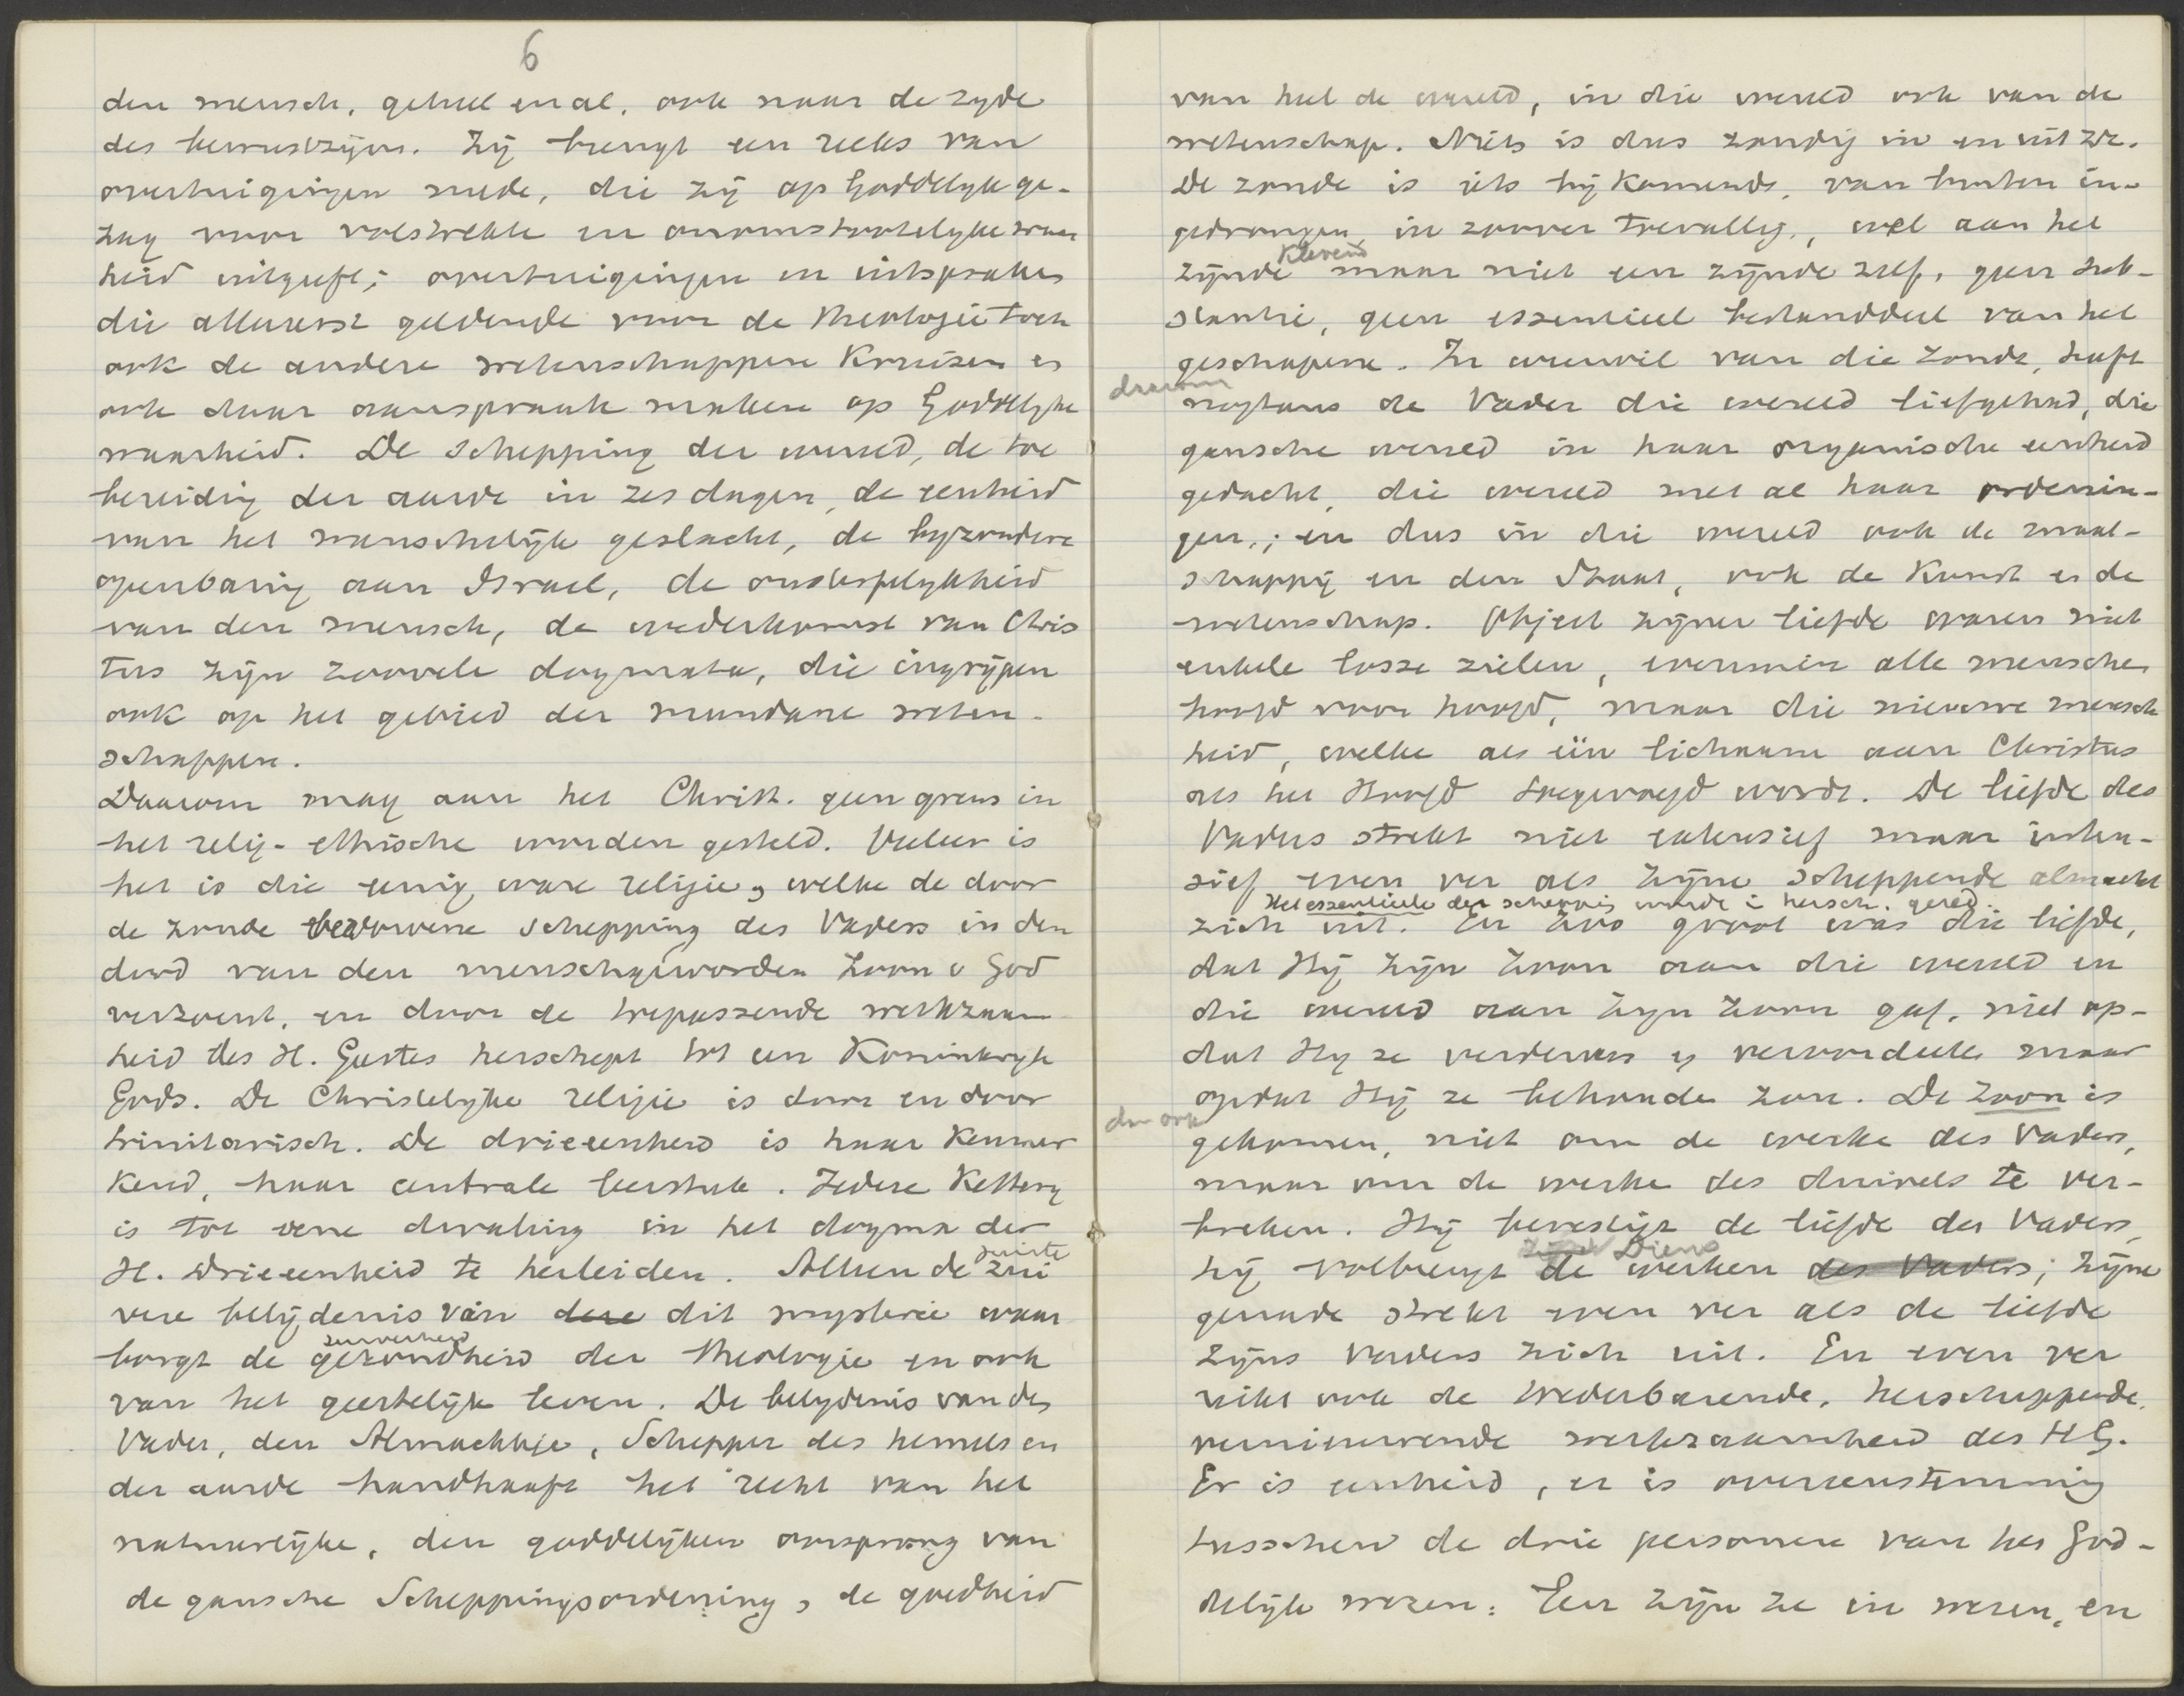 6
den mensch, geheel en al, ook naar de zyde
des bewustzijns. Zij brengt een reeks van
overtuigingen mede, die zij op Goddelijk ge-
zag voor volstrekte en onomstootelijke waar
heid uitgeeft; overtuigingen en uitspraken
die allereerst geldende voor de theologie toch
ook de andere wetenschappen kruisen en
ook daar aanspraak maken op Goddelyke
waarheid. De schepping der wereld, de toe
bereiding der aarde in zes dagen, de eenheid
van het menschelijk geslacht, de byzondere
openbaring aan Israel, de onsterfelykheid
van den mensch, de wederkomst van Chris
tus zijn zoovele dogmata, die ingrijpen
ook op het gebied der mundane weten-
schappen.
Daarom mag aan het Christ. geen grens in
het relig-ethische worden gesteld. Veeleer is
het is die eenig ware religie, welke de door
de zonde bedorvene schepping des Vaders in den
dood van den menschgeworden Zoon v God
verzoent, en door de toepassende werkzaam
heid des H. Geestes herschept tot een Koninkryk
Gods. De Christelijke religie is door en door
trinitarisch. De drieeenheid is haar kenmer
kend, haar centrale leerstuk. Iedere Kettery
is tot eene dwaling in het dogma der
H. Drieeenheid te herleiden. Alleen de zui
juiste
vere belijdenis van deze dit mysterie waar
borgt de gezondheid der theologie en ook
zuiverheid
van het geestelijk leven. De belydenis van den
Vader, den Almachtige, Schepper des hemels en
der aarde handhaaft het recht van het
natuurlijke, den goddelijken oorsprong van
de gansche Scheppingsordening, de goedheid
van heel de wereld, in die wereld ook van de
wetenschap. Niets is dus zondig in en uit zich.
De zonde is iets bijkomends, van buiten in-
gedrongen, in zoover toevallig, wel aan het
zijnde klevend maar niet een zijnde zelf, geen sub-
stantie, geen essentieel bestanddeel van het
geschapene. In weerwil van die zonde, heeft
daarom
nogtans de Vader die wereld liefgehad, die
gansche wereld in haar organische eenheid
gedacht, die wereld met al haar ordenin-
gen; en dus in die wereld ook de maat-
schappij en den Staat, ook de Kunst en de
wetenschap. Object zijner liefde waren niet
enkele losse zielen, evenmin alle menschen
hoofd voor hoofd, maar die nieuwe mensch
heid, welke als één lichaam aan Christus
als het Hoofd toegevoegd wordt. De liefde des
Vaders strekt niet extensief maar inten-
sief even ver als zijne scheppende almacht
Het essentieele der schepping wordt in hersch. gered.
zich uit. En zoo groot was die liefde,
dat Hij zijn Zoon aan die wereld en
die wereld aan zijn Zoon gaf, niet op-
dat Hij ze verderven en veroordeelen maar
opdat Hij ze behouden zou. De Zoon is
dan ook
gekomen, niet om de werken des Vaders,
maar om de werken des duivels te ver-
breken. Hij bevestigt de liefde des Vaders,
hij volbrengt de werken des Vaders; zijne
Diens
genade strekt even ver als de liefde
zijns Vaders zich uit. En even ver
reikt ook de wederbarende, herscheppende,
vernieuwende werkzaamheid des HG.
Er is eenheid, er is overeenstemming
tusschen de drie personen van het God-
delijk wezen: Een zijn ze in wezen, en